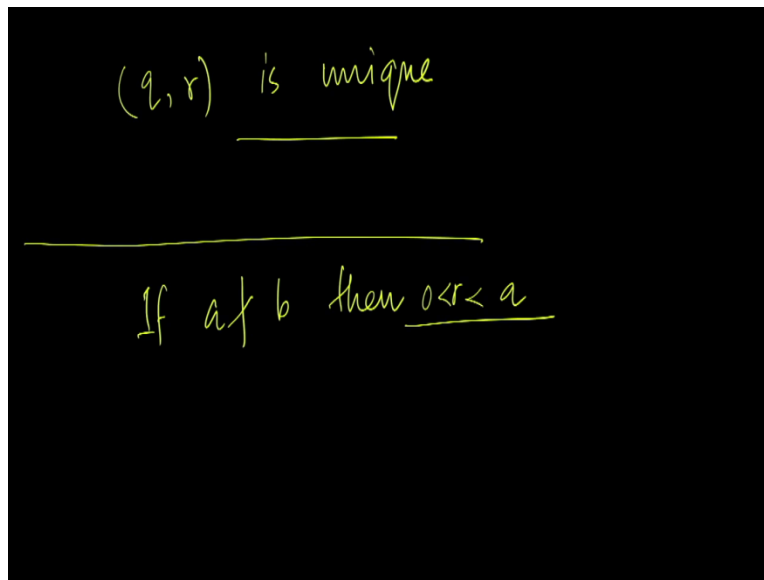 (q, r) is unique
If a ∤ b then 0<r< a